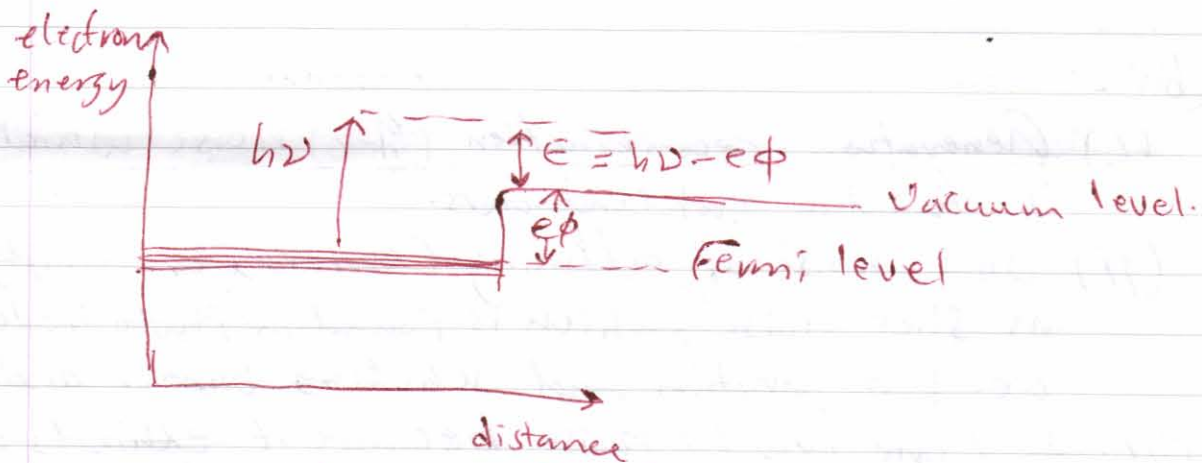 electron
energy
hν
ϵ = hν - eϕ
Vacuum level.
eϕ
Fermi level
distance